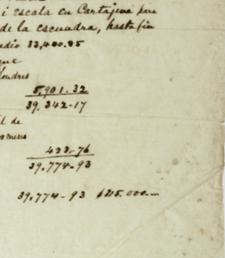 i escala en Cartajena para
de la escuadra, hasta fin
edio 33,400.85
que
londres
5,901.32
39,342-17
il de
432-76
39,774-93
39,774-93 $215.000._